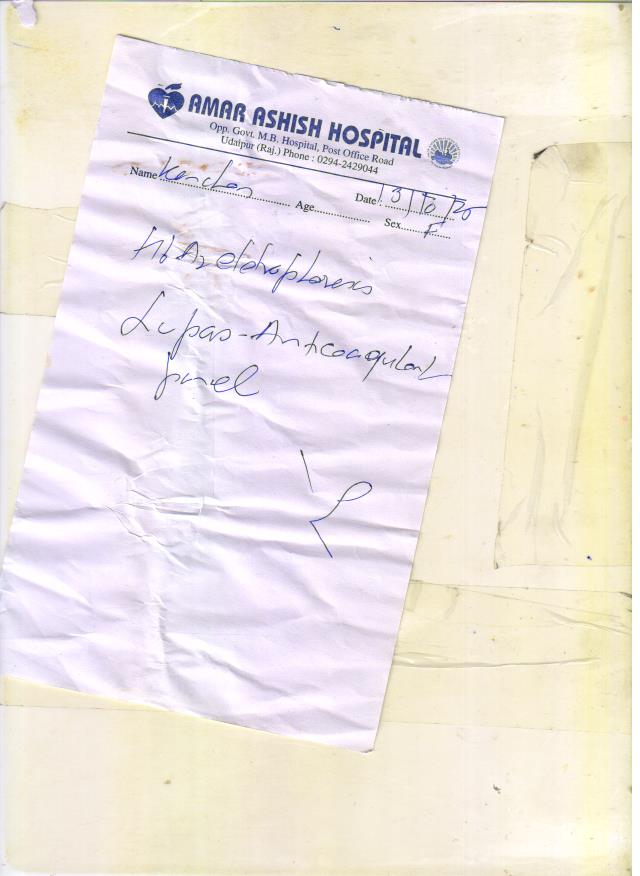 AMAR ASHISH HOSPITAL
Opp. Govt. M.B. Hospital, Post Office Road
Udaipur (Raj.) Phone : 0294-2429044
Name Kanchan Age Date 13/10/25
Sex F
Hb A2 eletrophoresis
Lupas-Anticoagulant
panel